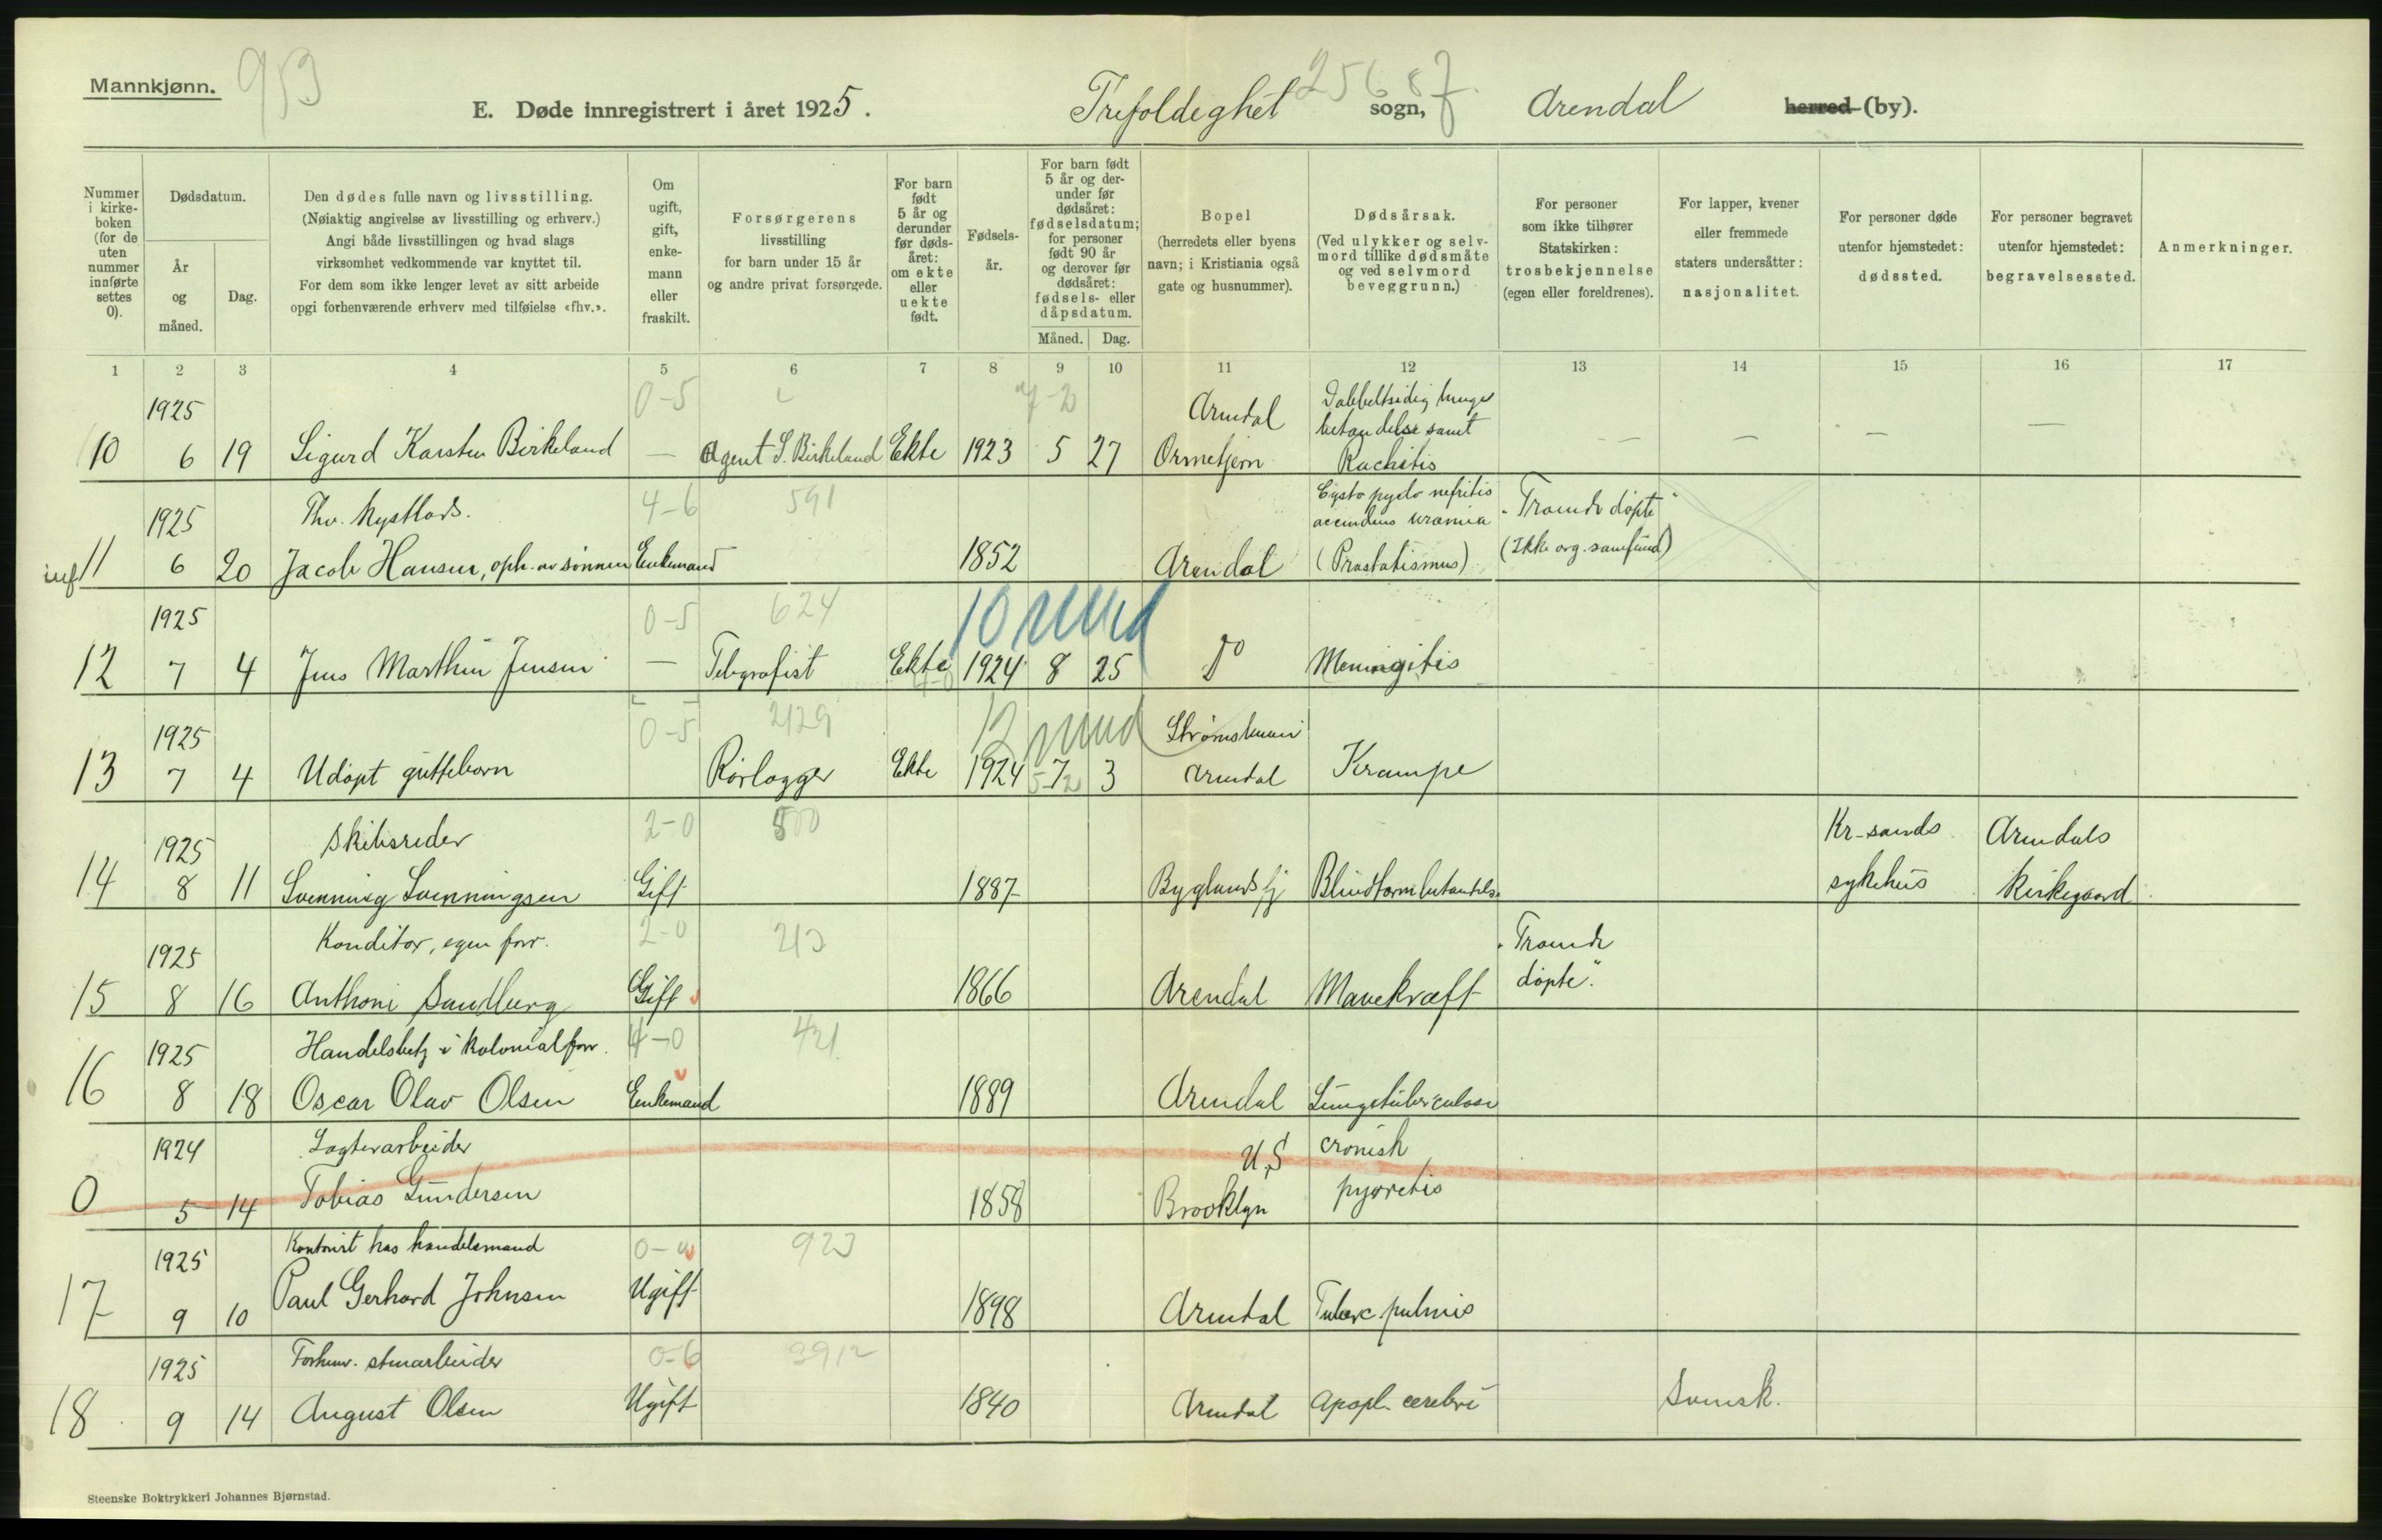 Mannkjønn. 953
E. Døde innregistrert i året 1925. Trefoldighet sogn, 2568 7 Arendal herred (by).
Nummer i kirkeboken (for de uten nummer innførte settes 0).
Dødsdatum.
År og måned.
Dag.
Den dødes fulle navn og livsstilling.
(Nøiaktig angivelse av livsstilling og erhverv.)
Angi både livsstillingen og hvad slags
virksomhet vedkommende var knyttet til.
For dem som ikke lenger levet av sitt arbeide
opgi forhenværende erhverv med tilføielse «fhv.».
Om ugift, gift, enkemann eller fraskilt.
Forsørgerens
livsstilling
for barn under 15 år
og andre privat forsørgede.
For barn født 5 år og derunder før dødsåret: om ekte eller uekte født.
Fødselsår.
For barn født 5 år og derunder før dødsåret: fødselsdatum; for personer født 90 år og derover før dødsåret: fødsels- eller dåpsdatum.
Måned. Dag.
Bopel
(herredets eller byens
navn; i Kristiania også
gate og husnummer).
Dødsårsak.
(Ved ulykker og selvmord tillike dødsmåte og ved selvmord beveggrunn.)
For personer
som ikke tilhører
Statskirken:
trosbekjennelse
(egen eller foreldrenes).
For lapper, kvener
eller fremmede
staters undersåtter:
nasjonalitet.
For personer døde
utenfor hjemstedet:
dødssted.
For personer begravet
utenfor hjemstedet:
begravelsessted.
Anmerkninger.
1 2 3 4 5 6 7 8 9 10 11 12 13 14 15 16 17
1925 0-5 Arendal Dobbeltsidig lunge
betændelse samt
10 6 19 Sigurd Karsten Birkeland — Agent S. Birkeland Ekte 1923 5 27 Ormetjern Rachitis — — — —
1925 Fhv. 4-6 591 Cysto pyelo nefritis
accendens uræmia "Troende døpte"
11 6 20 Jacob Hansen, oph. av sønnen Enkemand 1852 Arendal (Prostatismus) (Ikke org. samfund)
1925 0-5 624 10 mnd
12 7 4 Jens Marthin Jensen — Telegrafist Ekte 1924 8 25 Do Meningitis
1925 0-5 2129 12 mnd
13 7 4 Udøpt guttebarn Rørlægger Ekte 1924 7 3 Arendal Krampe
1925 Skibsreder 2-0 500 Kr-sands Arendals
14 8 11 Svenning Svenningsen Gift 1887 Byglandsfj Blindtarmbetændelse sykehus kirkegaard
1925 Konditor, egen forr. 2-0 213 "Troende
15 8 16 Anthoni Sandberg Gift 1866 Arendal Mavekræft døpte."
1925 Handelsbetj i kolonialforr. 4-0 421
16 8 18 Oscar Olav Olsen Enkemand 1889 Arendal Lungetuberculose
1924 Lægterarbeider U.S cronisk
0 5 14 Tobias Gundersen 1858 Brooklyn
1925 Kontorist hos handelsmand 923
17 9 10 Paul Gerhard Johnsen Ugift 1898 Arendal Tuberc pulmis
1925 Forhenv. stuearbeider 0-6 3912
18 9 14 August Olsen Ugift 1840 Arendal Apopl. cerebri Svensk.
Steenske Boktrykkeri Johannes Bjørnstad.